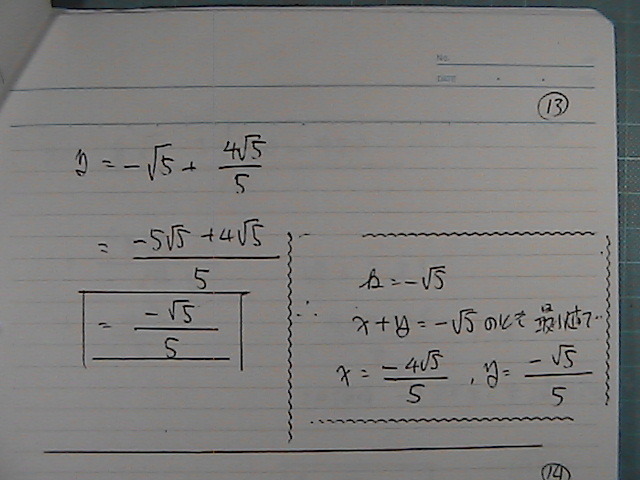 No.
DATE
⑬
y = -√5 + 4√5/5
= (-5√5 + 4√5)/5
= -√5/5
∴
k = -√5
x + y = -√5 のとき 最小値で..
x = -4√5/5 , y = -√5/5
⑭